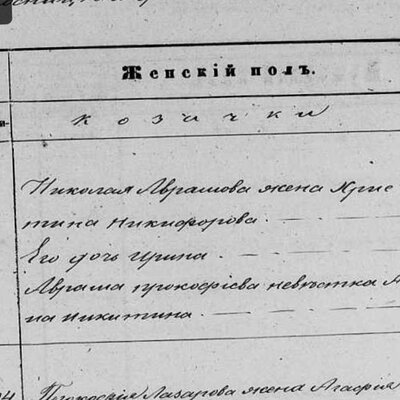 Женскій полъ.
козачки
Николая Аврамова жена Хрис
тина Никифорова.
Его дочь Ирина.
Аврама Прокофіева невѣстка А
на Никитина.
Лазарова жена Агафія